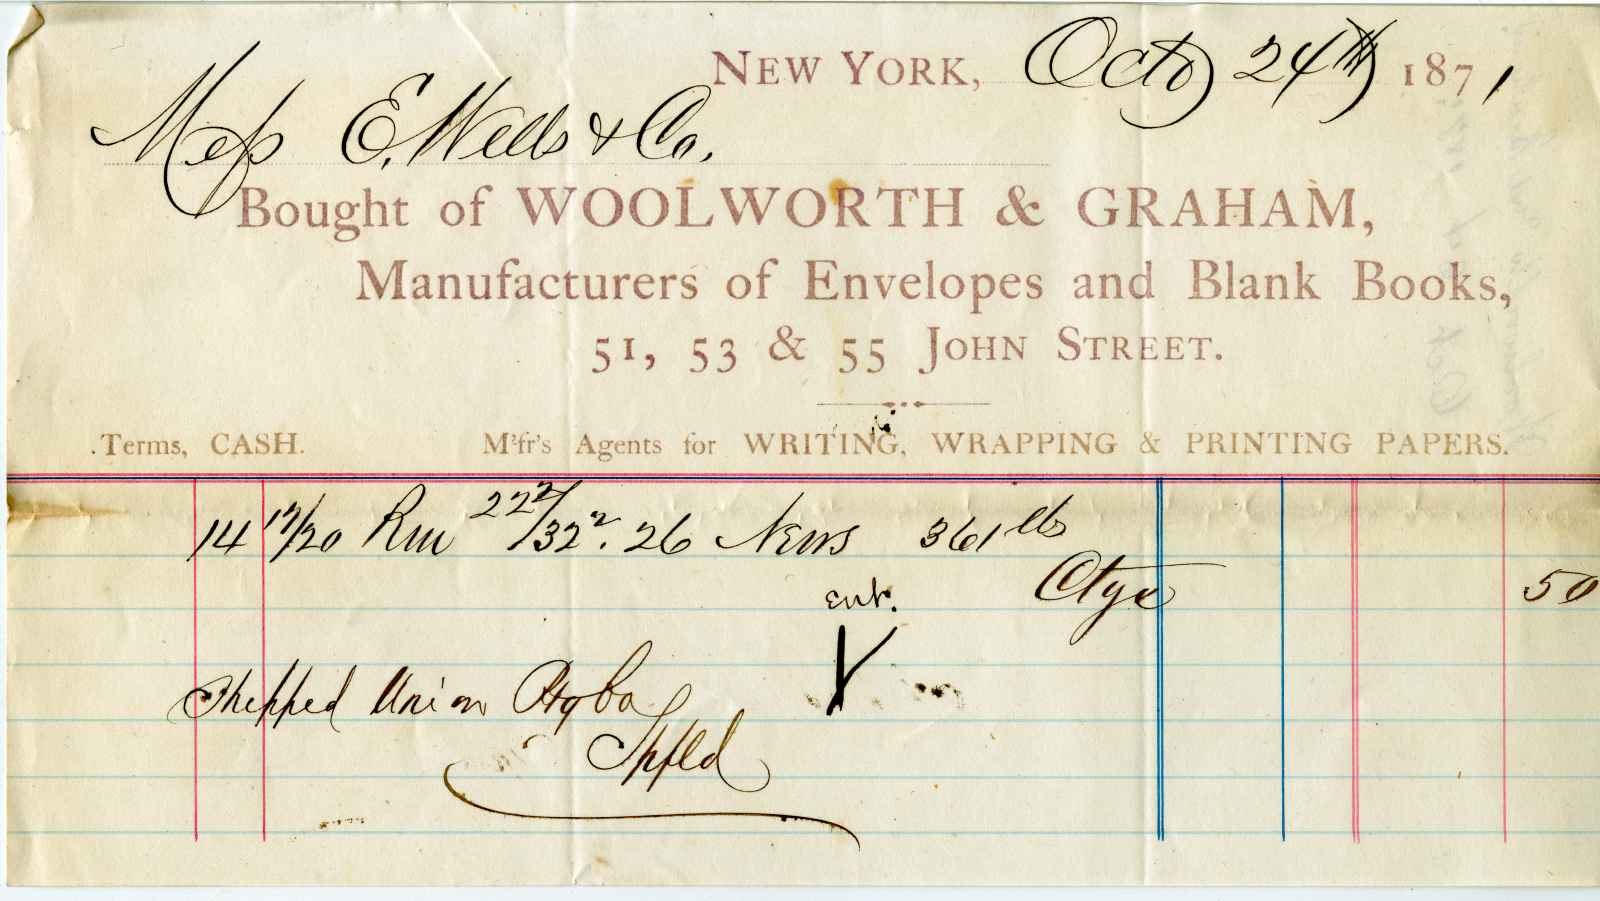 New York, Octo 24th 1871,
Mess E. Wells & Co.
Bought of WOOLWORTH & GRAHAM,
Manufacturers of Envelopes and Blank Books,
51, 53 & 55 John Street.
Terms, CASH. M'f'r's Agents for WRITING, WRAPPING & PRINTING PAPERS.
14 17/20 Rm 22 2/32 2. 26 News 361 lbs
Ctge 50
ent.
Shipped Union
Spfld